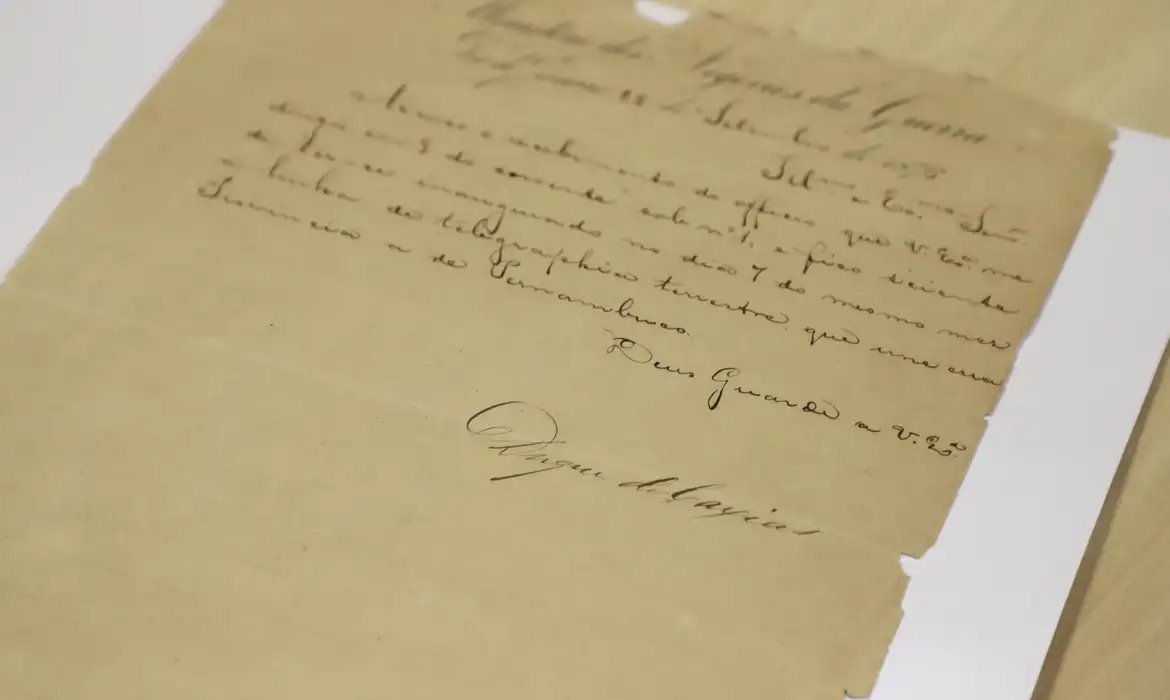 Negocios da Guerra
de Setembro de
Illmo e Exmo Senr.
Accuso o recebimento do officio que V. Exa. me
em 9 do corrente sob nº 1, e fico sciente
de ter-se inaugurado no dia 7 do mesmo mez
a linha telegraphica terrestre que une essa
Provincia a de Pernambuco.
Deus Guarde a V. Exa.
Duque de Caxias